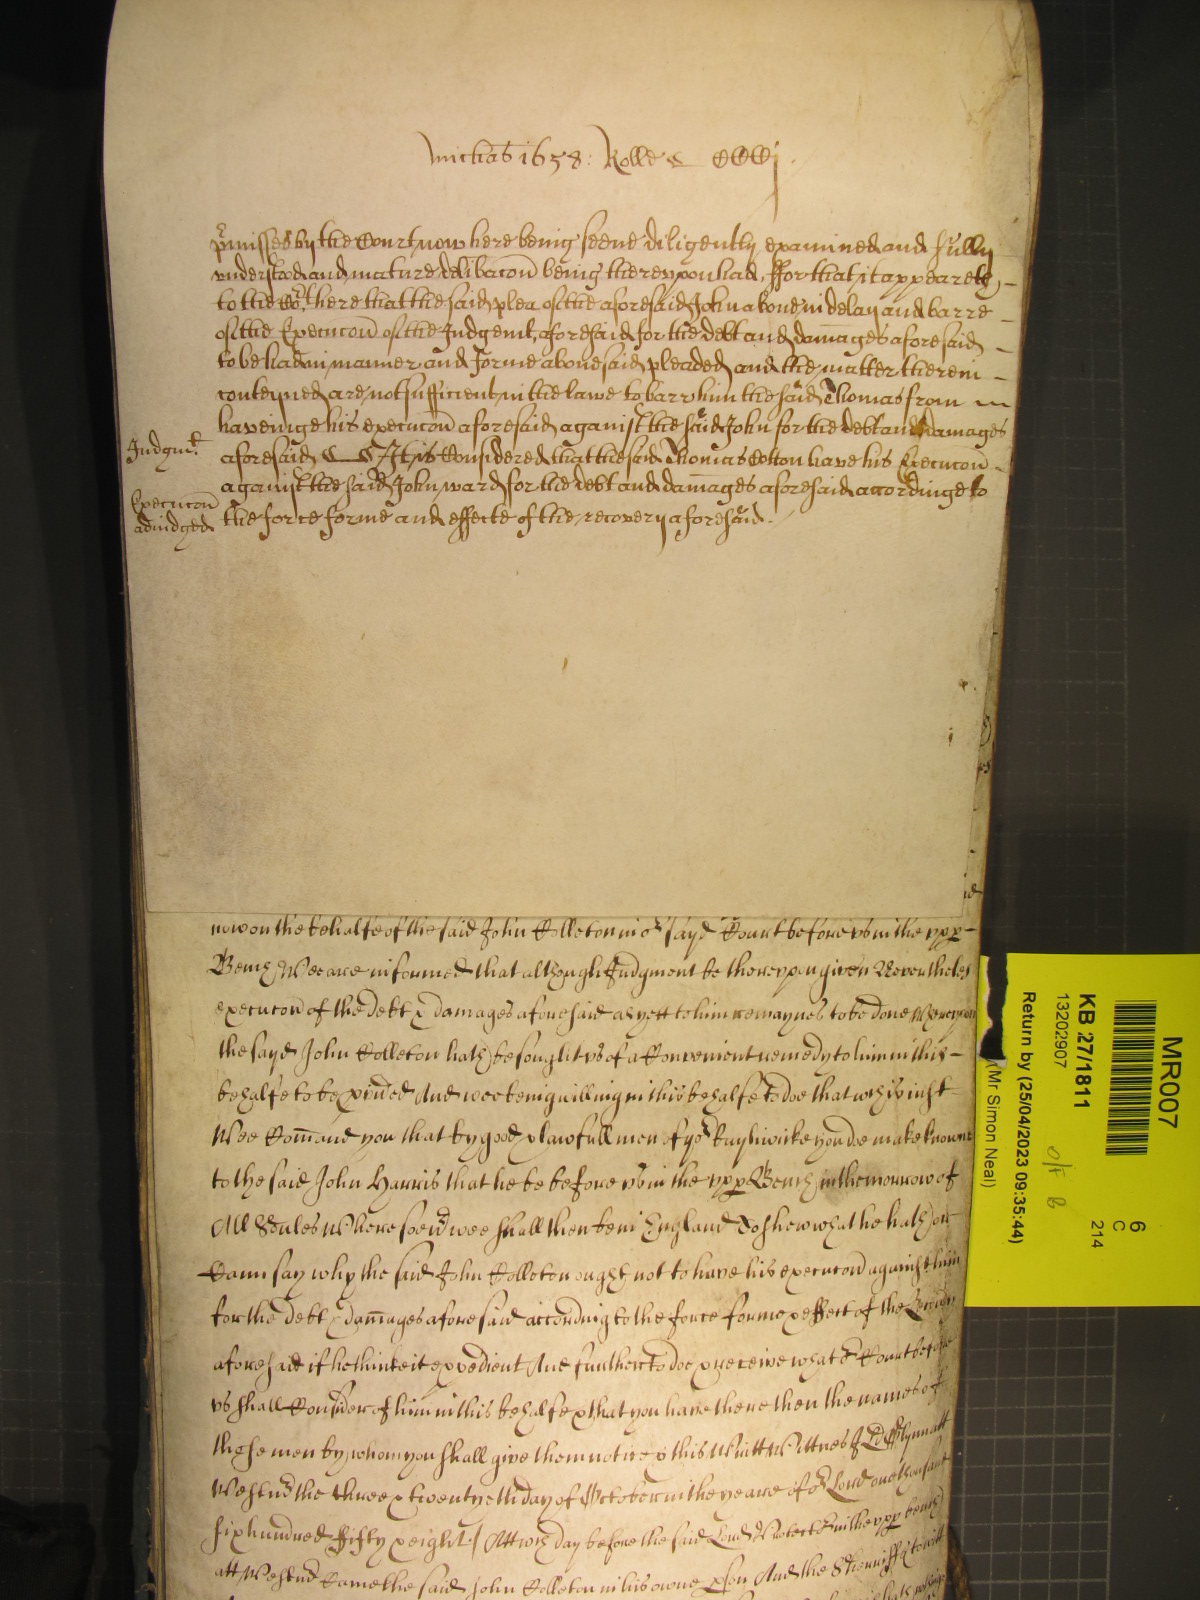 Michas 1658: Rolle
pmisses by the Court now here being seene diligently examined and fully
understood and mature delibacon being thereupon had, ffor that it appeareth
to the Cort here that the said plea of the aforesaid John above in delay and barre
of the Execucon of the Judgemt aforesaid for the debt and damages aforesaid
to be had in manner and forme abovesaid pleaded and the matter therein
conteyned are not sufficient in the lawe to barr him the said Thomas from
haveinge his execucon aforesaid against the said John for the debt and damages
Judgmt
aforesaid It is Considered that the said Thomas Cotton have his Execucon
against the said John ward for the debt and damages aforesaid accordinge to
Execucon
adiudged
the force forme and effecte of the recovery aforesaid.
now on the behalfe of the said John Colleton in or sayd Court before us in the upp
Bench Wee are informed that although Judgment be thereupon given Neverthelesse
execucon of the debt & damages aforesaid as yett to him remaynes to be done Whereupon
the sayd John Colleton hath besought us of a Convenient remedy to him in this
behalfe to be pvided And wee being willing in this behalfe to doe that wch is right
Wee Comand you that by good & lawfull men of yor Bayliwicke you doe make knowne
to the said John Harris that he be before us in the upp Bench in the morrow of
All Soules Wheresoevr wee shall then be in England To shew what he hath or
Cann say why the said John Colleton ought not to have his execucon against him
for the debt & damages aforesaid according to the force forme & effect of the
aforesaid if he thinke it expedient And further to doe & receive what or Court before
us shall Consider of him in this behalfe & that you have there then the names of
those men by whom you shall give them notice & this Writt Wittnes J Glynn att
Westmr the three & twentyeth day of October in the yeare of or Lord one thousand
six hundred ffifty & eight Att wch day before the said Lord Protector in the upp bench
att Westmr Came the said John Colleton in his owne pson And the Sherriffe to witt
MR007
6
C
214
KB 27/1811
13202907
Return by (25/04/2023 09:35:44)
(Mr Simon Neal)